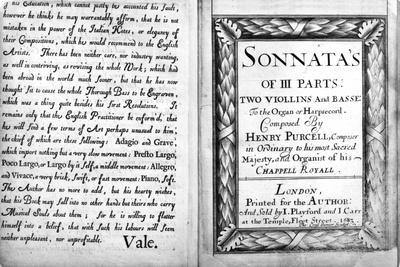 of his Education, which cannot justly be accounted his fault,
however he thinks he may warrantably affirm, that he is not
mistaken in the power of the Italian Notes, or elegancy of
their Compositions, which he would recommend to the English
Artists. There has been neither care, nor industry wanting,
as well in contriving, as revising the whole Work; which had
been abroad in the world much sooner, but that he has now
thought fit to cause the whole Thorough Bass to be Engraven,
which was a thing quite besides his first Resolutions. It
remains only that the English Practitioner be enform'd, that
he will find a few terms of Art perhaps unusual to him,
the chief of which are these following: Adagio and Grave,
which import nothing but a very slow movement: Presto Largo,
Poco Largo, or Largo by it Self, a middle movement: Allegro,
and Vivace, a very brisk, Swift, or fast movement: Piano, Soft.
The Author has no more to add, but his hearty wishes,
that his Book may fall into no other hands but theirs who carry
Musical Souls about them; for he is willing to flatter
himself into a belief, that with Such his labours will seem
neither unpleasent, nor unprofitable.
Vale.
SONNATA'S
OF III PARTS:
TWO VIOLLINS And BASSE:
To the Organ or Harpsecord.
Composed By
HENRY PURCELL, Composer
in Ordinary to his most Sacred
Majesty, and Organist of his
CHAPPELL ROYALL.
LONDON,
Printed for the AUTHOR:
And Sold by I. Playford and I. Carr
at the Temple, Fleet Street. 1683.